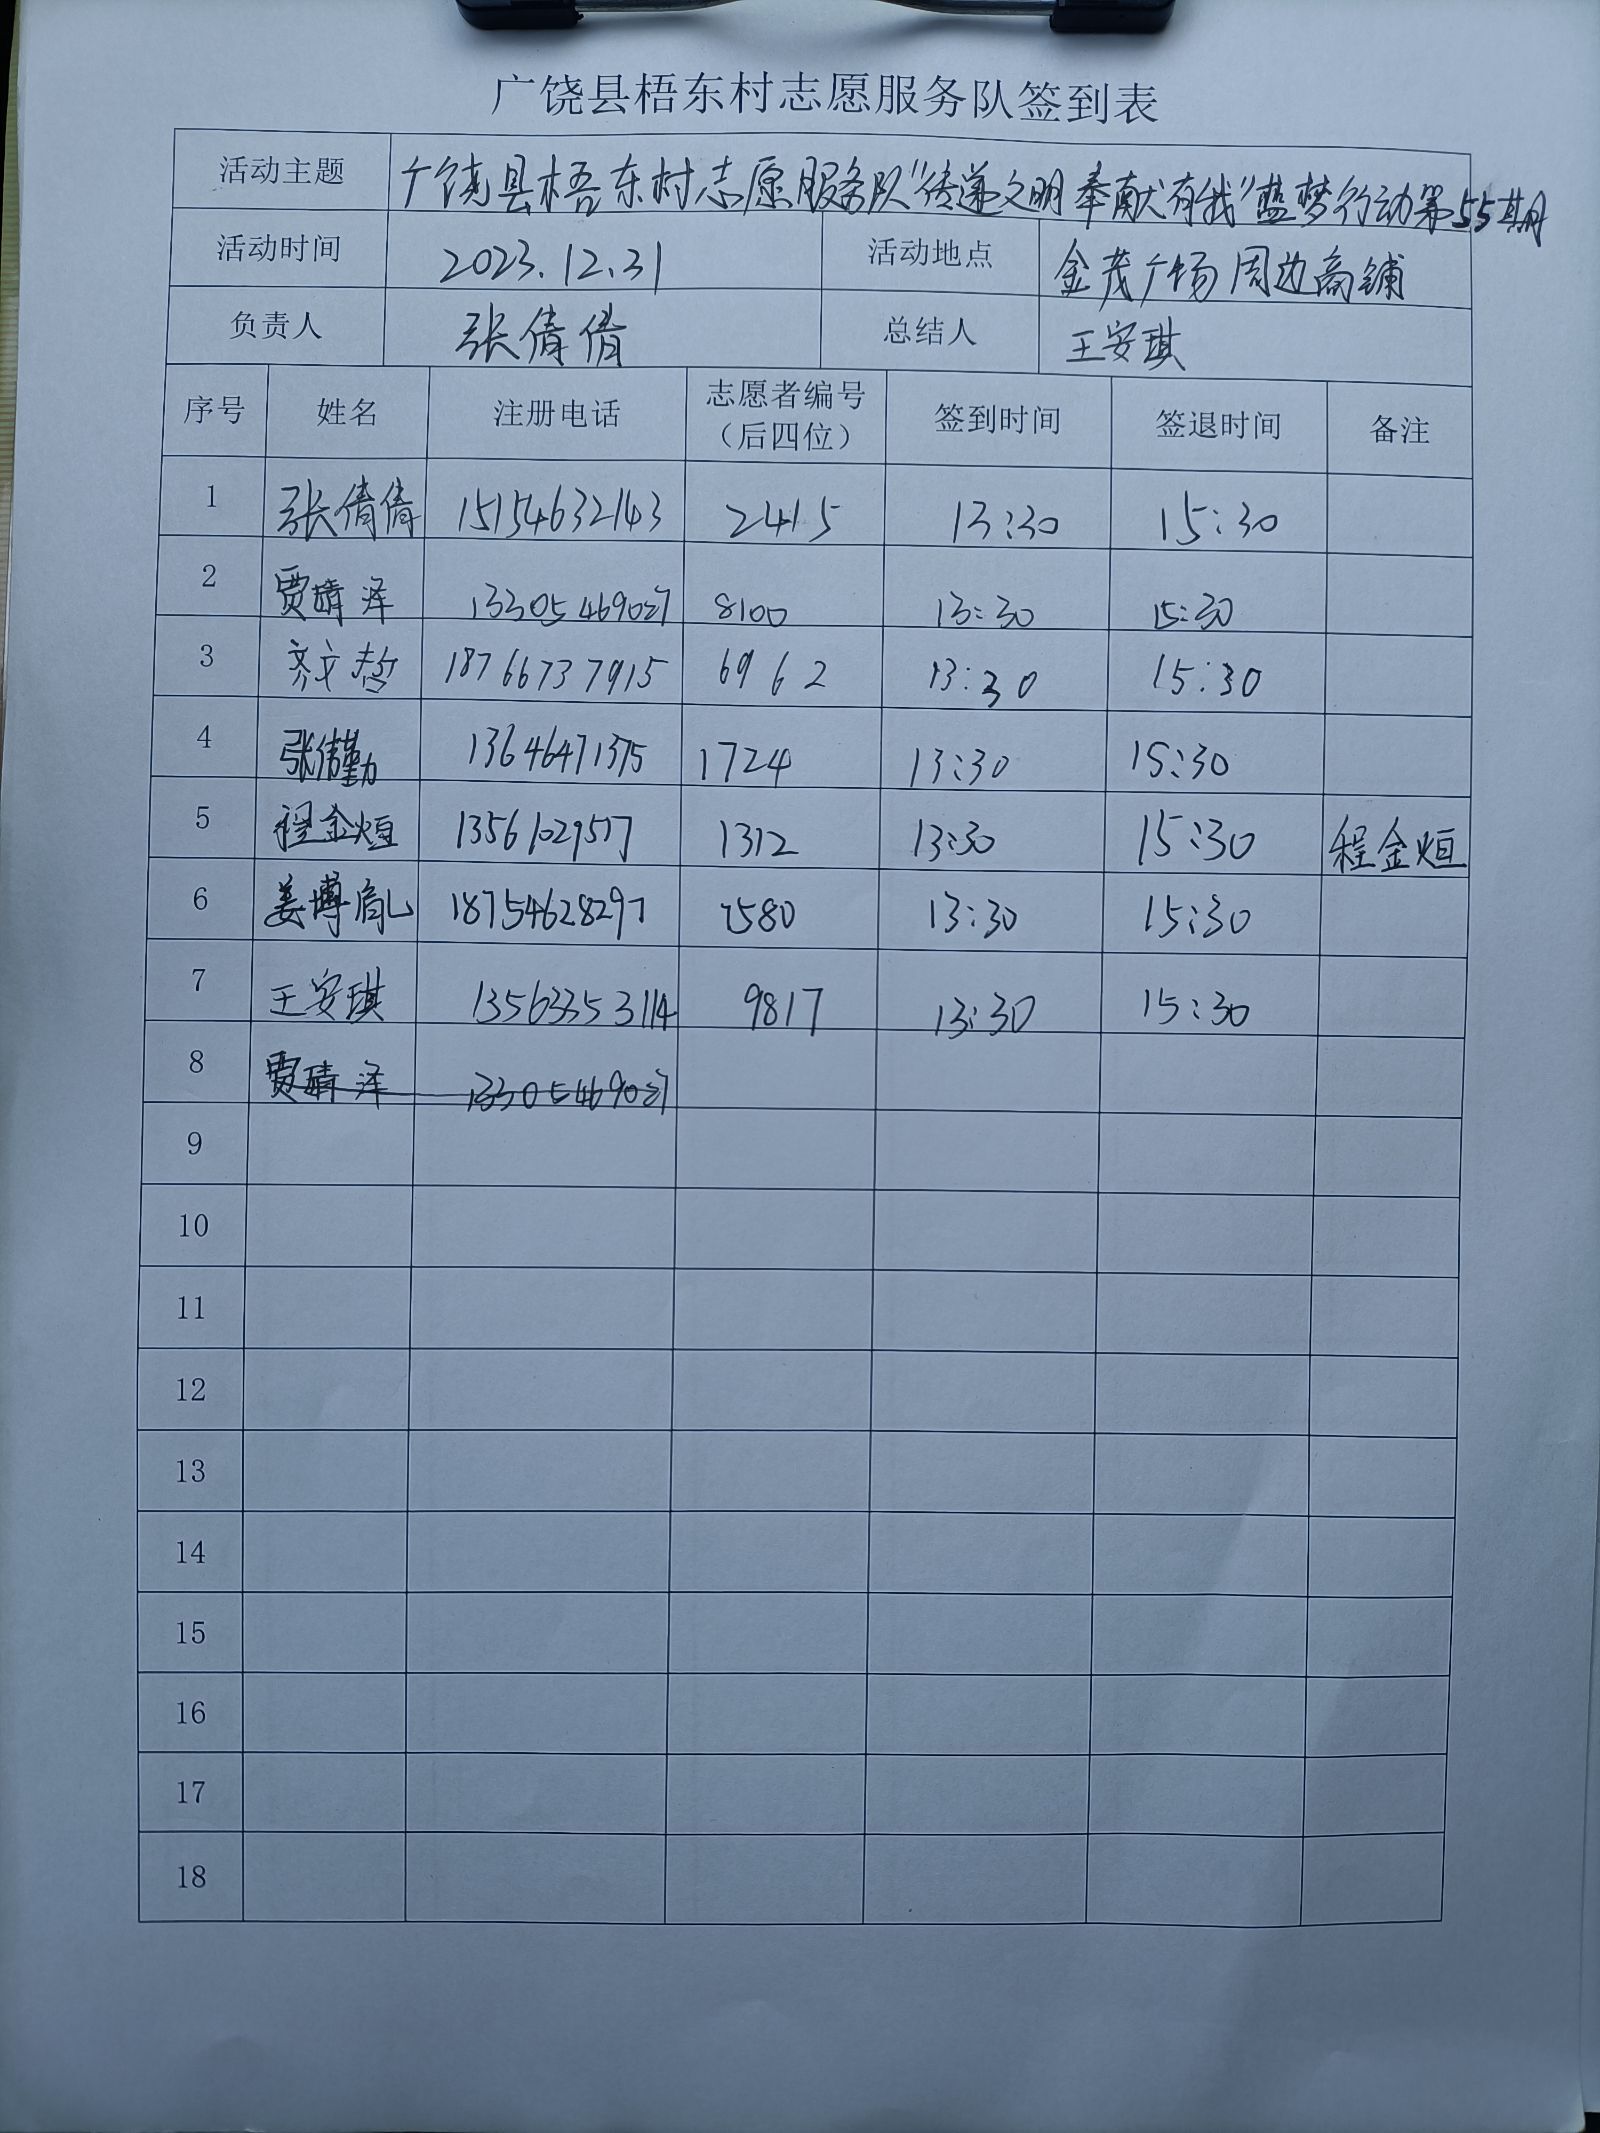 广饶县梧东村志愿服务队签到表
活动主题 广饶县梧东村志愿服务队“传递文明 奉献有我”蓝梦行动第55期
活动时间 2023.12.31 活动地点 金茂广场周边商铺
负责人 张倩倩 总结人 王安琪
序号 姓名 注册电话 志愿者编号（后四位） 签到时间 签退时间 备注
1 张倩倩 15154632143 2415 13:30 15:30
2 贾晴泽 8100 13:30 15:30
3 齐文哲 18766737915 6962 13:30 15:30
4 张倩勤 13646471375 1724 13:30 15:30
5 程金烜 1312 13:30 15:30 程金烜
6 姜博胤 18754628297 13:30 15:30
7 王安琪 13563353114 9817 13:30 15:30
8 贾晴泽
9
10
11
12
13
14
15
16
17
18